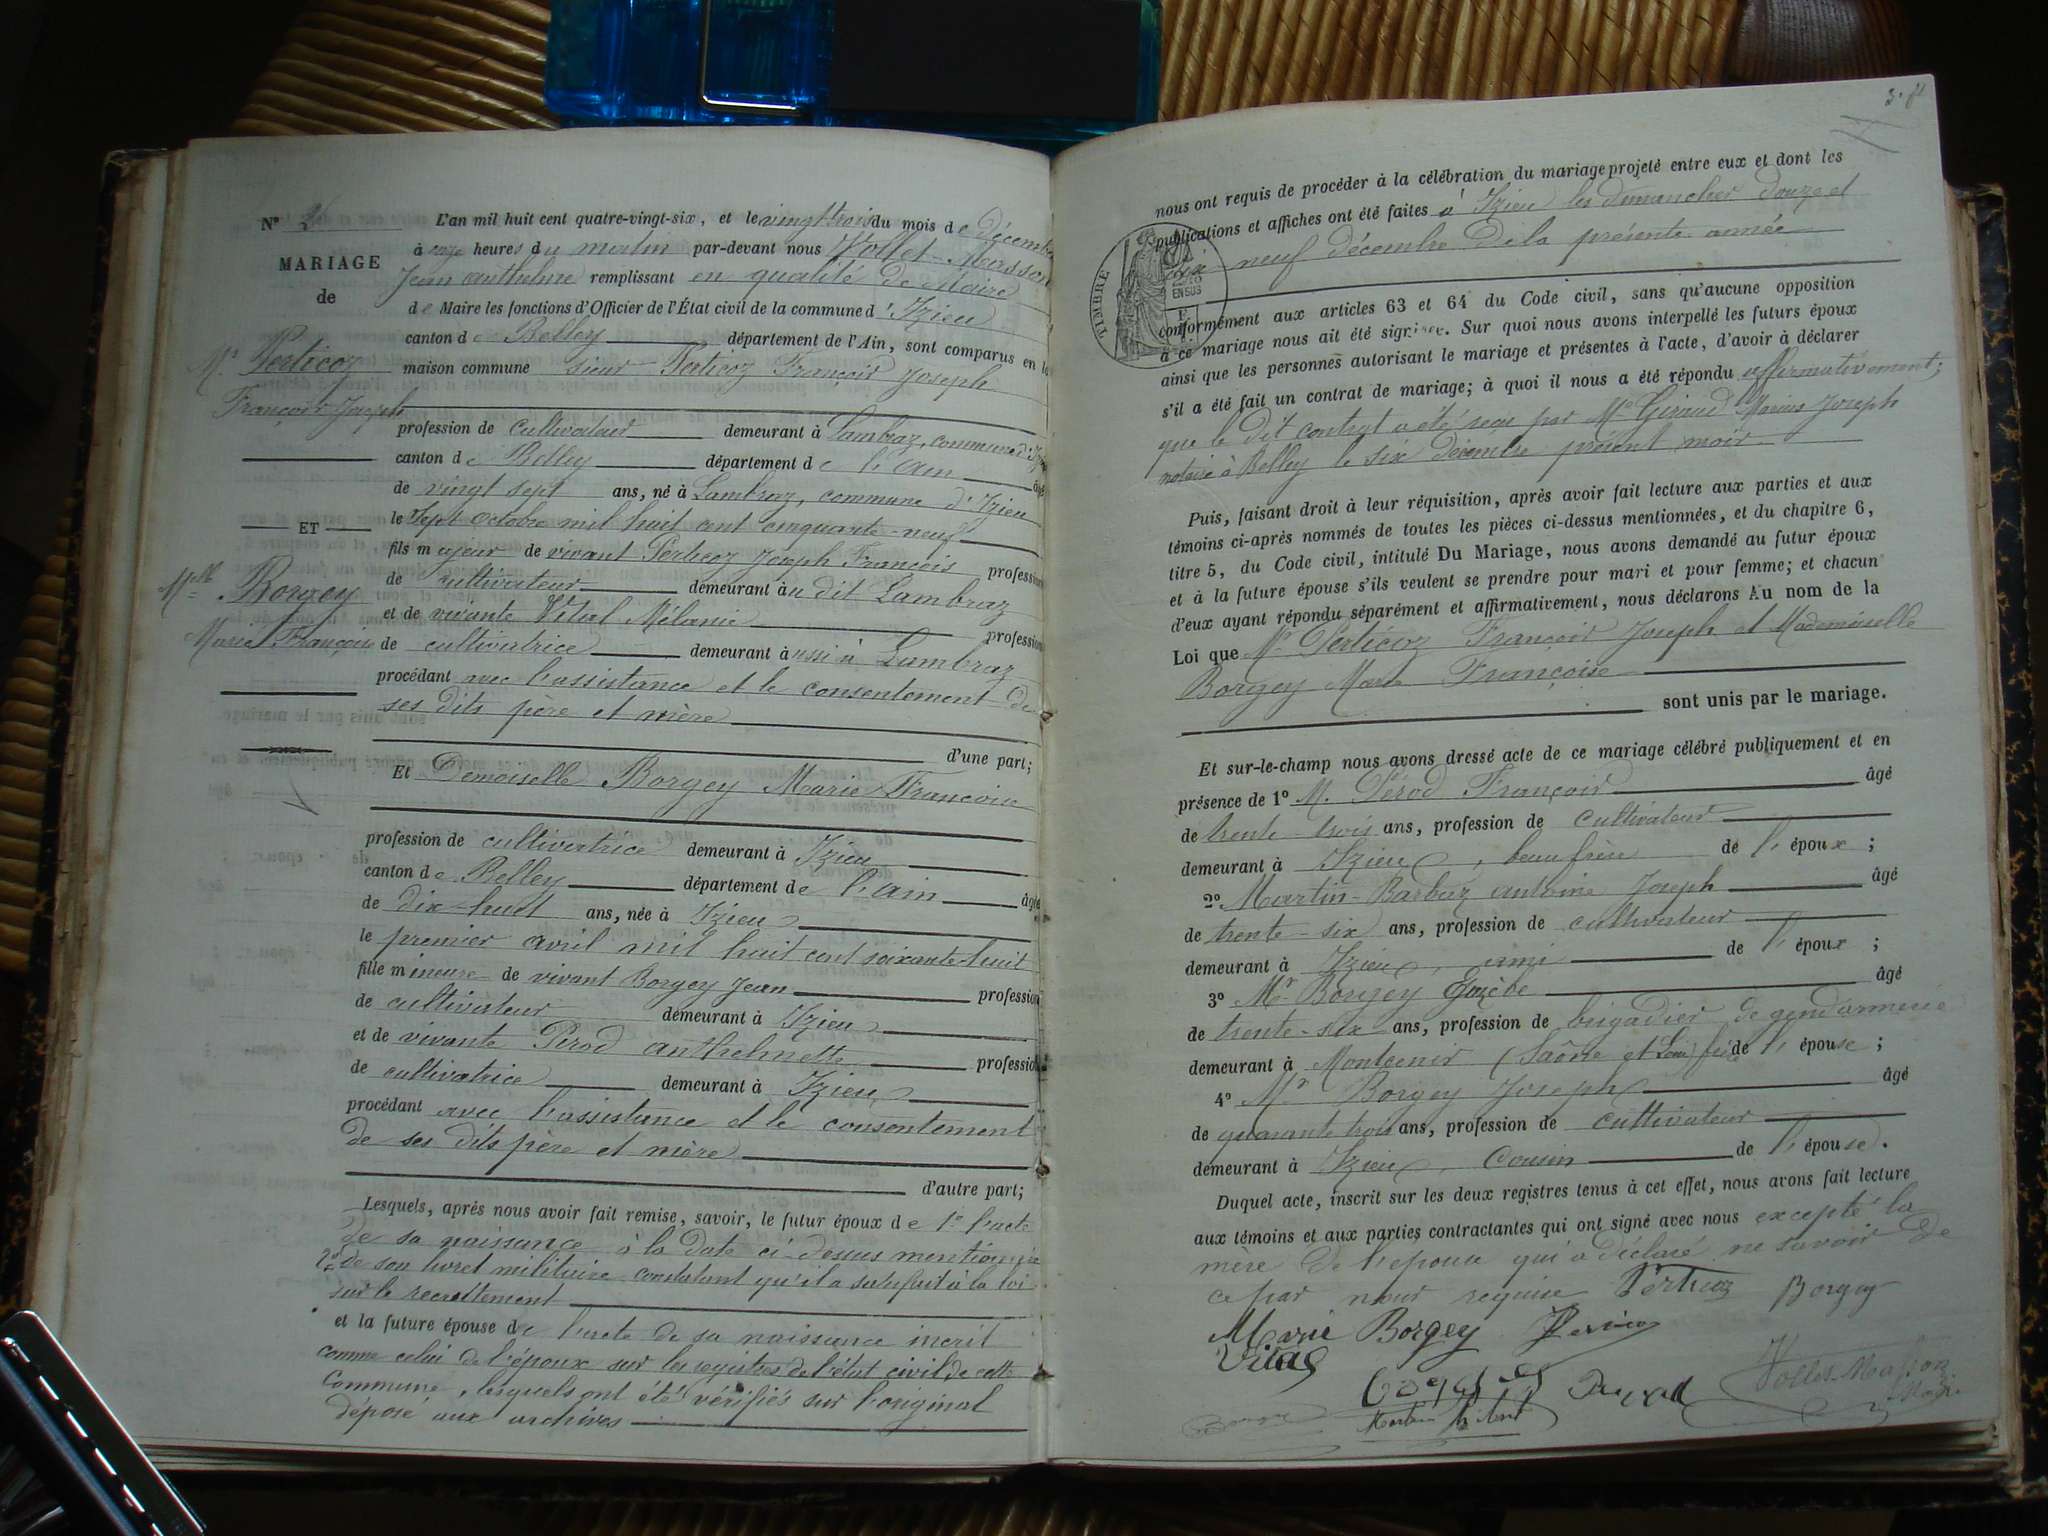 N°
L'an mil huit cent quatre-vingt-six, et le vingt trois du mois de décembre
MARIAGE
à onze heures du matin par-devant nous Vollet-Masson
de
Jean anthelme remplissant en qualité de Maire
de Maire les fonctions d'Officier de l'État civil de la commune d'Izieu
canton de Belley département de l'Ain, sont comparus en la
Mr Perticoz
maison commune sieur Perticoz François Joseph
François Joseph
profession de cultivateur demeurant à Lambraz, commune d'Izieu
canton de Belley département de l'ain âgé
de vingt sept ans, né à Lambraz, commune d'Izieu
le sept octobre mil huit cent cinquante-neuf
ET
fils majeur de vivant Perticoz Joseph François profession
de cultivateur demeurant au dit Lambraz
Melle Borgey
et de vivante Vital Mélanie profession
Marie Françoise
de cultivatrice demeurant aussi à Lambraz
procédant avec l'assistance et le consentement de
ses dits père et mère
d'une part;
Et Demoiselle Borgey Marie Françoise
profession de cultivatrice demeurant à Izieu
canton de Belley département de l'ain âgée
de dix-huit ans, née à Izieu
le premier avril mil huit cent soixante-huit
fille mineure de vivant Borgey Jean profession
de cultivateur demeurant à Izieu
et de vivante Pérod anthelmette profession
de cultivatrice demeurant à Izieu
procédant avec l'assistance et le consentement
de ses dits père et mère
d'autre part;
Lesquels, après nous avoir fait remise, savoir, le futur époux de 1° l'acte
de sa naissance à la date ci-dessus mentionnée
2° de son livret militaire constatant qu'il a satisfait à la loi
sur le recrutement
et la future épouse de l'acte de sa naissance inscrit
comme celui de l'époux sur les registres de l'état civil de cette
commune, lesquels ont été vérifiés sur l'original
déposé aux archives
nous ont requis de procéder à la célébration du mariage projeté entre eux et dont les
publications et affiches ont été faites à Izieu les dimanches douze et
dix-neuf décembre de la présente année
TIMBRE
EN SUS
conformément aux articles 63 et 64 du Code civil, sans qu'aucune opposition
à ce mariage nous ait été signifiée. Sur quoi nous avons interpellé les futurs époux
ainsi que les personnes autorisant le mariage et présentes à l'acte, d'avoir à déclarer
s'il a été fait un contrat de mariage; à quoi il nous a été répondu affirmativement;
que le dit contrat a été reçu par Me Giraud Marius Joseph
notaire à Belley le six décembre présent mois
Puis, faisant droit à leur réquisition, après avoir fait lecture aux parties et aux
témoins ci-après nommés de toutes les pièces ci-dessus mentionnées, et du chapitre 6,
titre 5, du Code civil, intitulé Du Mariage, nous avons demandé au futur époux
et à la future épouse s'ils veulent se prendre pour mari et pour femme; et chacun
d'eux ayant répondu séparément et affirmativement, nous déclarons Au nom de la
Loi que Mr Perticoz François Joseph et Mademoiselle
Borgey Marie Françoise
sont unis par le mariage.
Et sur-le-champ nous avons dressé acte de ce mariage célébré publiquement et en
présence de 1° M. Pérod François âgé
de trente-trois ans, profession de cultivateur
demeurant à Izieu, beau frère de l'époux;
2° Martin-Barbaz antoine Joseph âgé
de trente-six ans, profession de cultivateur
demeurant à Izieu, ami de l'époux;
3° Mr Borgey Euzèbe âgé
de trente-six ans, profession de brigadier de gendarmerie
demeurant à Montcenis (Saône et Loire) frère de l'épouse;
4° Mr Borgey Joseph âgé
de quarante trois ans, profession de cultivateur
demeurant à Izieu, cousin de l'épouse.
Duquel acte, inscrit sur les deux registres tenus à cet effet, nous avons fait lecture
aux témoins et aux parties contractantes qui ont signé avec nous excepté la
mère de l'épouse qui a déclaré ne savoir de
ce par nous requise Perticoz Borgey
Marie Borgey
Vital
Vollet-Masson
Maire